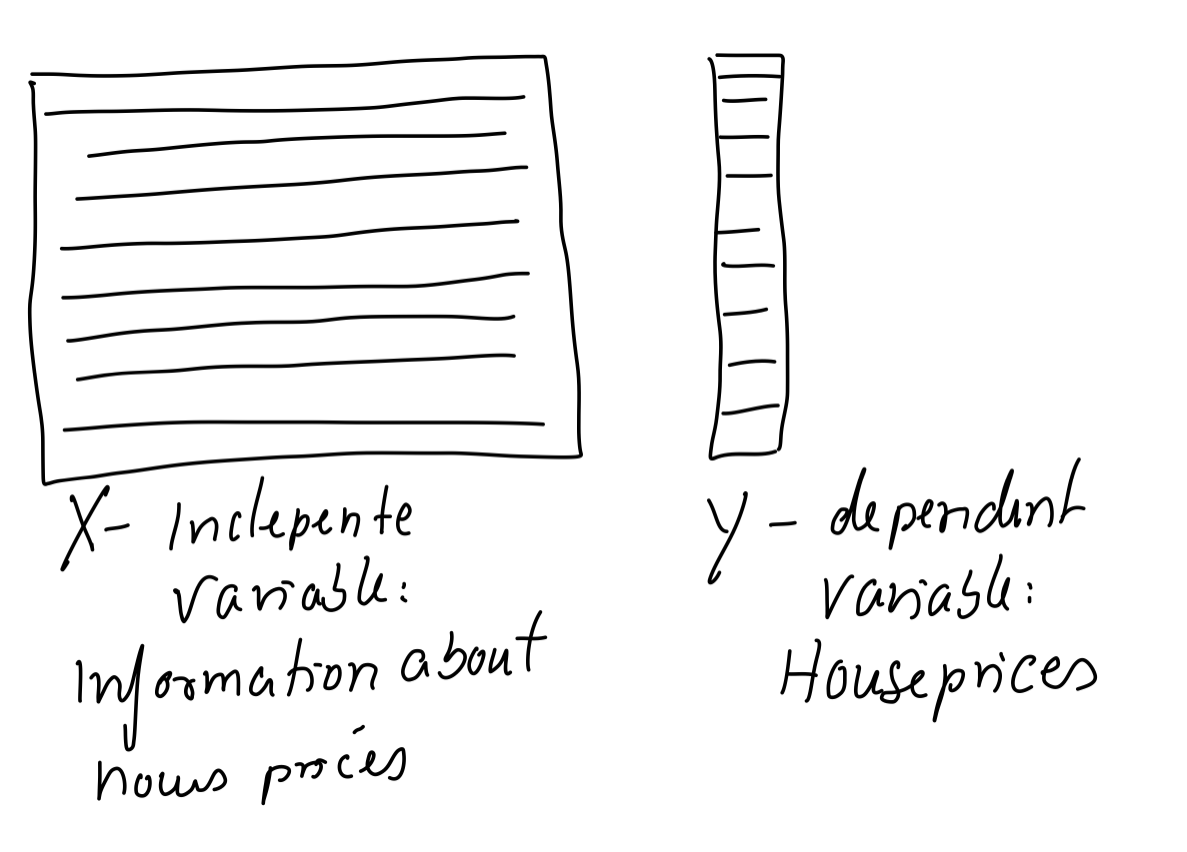 X- Indepente
variable:
Information about
hous prices
y - dependent
variable:
House prices